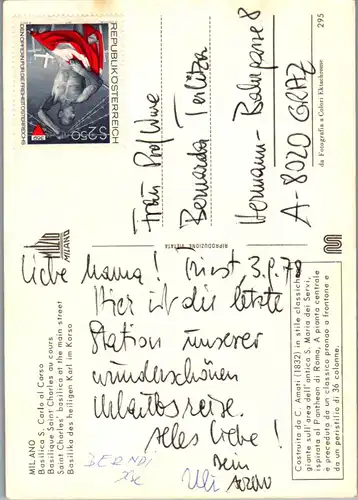 MILANO
Basilica S. Carlo al Corso
Basilique Saint Charles au cours
Saint Charles' basilica at the main street
Basilika des heiligen Karl im Korso
Liebe Mama! Triest, 3.9.78
Hier ist die letzte
Station unserer
wunderschönen
Urlaubsreise.
Alles Liebe!
Dein
BERNDI
Uli
Costruita da C. Amati (1832) in stile classicheg-
giante sull'area dell'antica S. Maria dei Servi,
ispirata al Pantheon di Roma. A pianta centrale
e preceduta da un classico pronao a frontone e
da un peristilio di 36 colonne.
MILANO
RIPRODUZIONE VIETATA
REPUBLIK ÖSTERREICH
S2.50
DEN OPFERN FÜR DIE FREIHEIT ÖSTERREICHS
Frau Prof.
Bernarda
Hermann-Bahrgasse 8
A-8020 GRAZ
da Fotografia a Colori Ektachrome
295